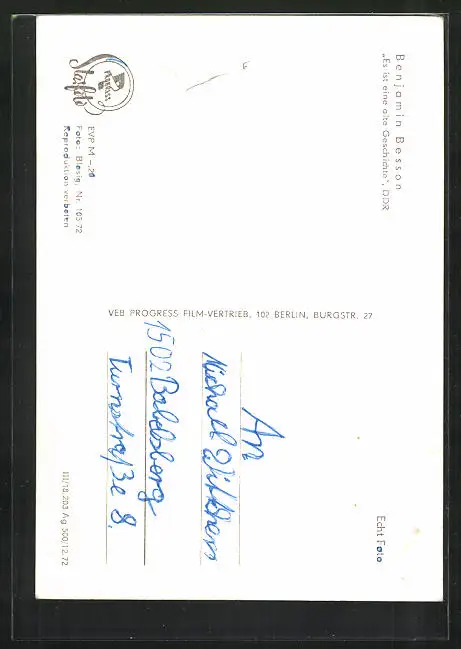 Benjamin Besson
„Es ist eine alte Geschichte", DDR
progress
Starfoto
EVP M -,20
Foto: Blasig, Nr. 105 72
Reproduktion verboten
VEB PROGRESS FILM-VERTRIEB, 102 BERLIN, BURGSTR. 27
Echt Foto
An
Michael
1502 Babelsberg
Turnstraße 8
III/18/203 Ag 500/12.72